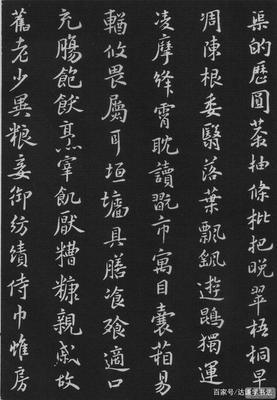 渠的歷園莽抽條枇杷晚翠梧桐早
凋陳根委翳落葉飄颻遊鵾獨運
凌摩絳霄耽讀翫市寓目囊箱易
輶攸畏屬耳垣墻具膳飡飯適口
充腸飽飫烹宰飢厭糟糠親戚故
舊老少異粮妾御紡績侍巾帷房
百家号/达谦学书法